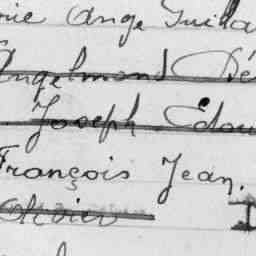 Ange
Angelmond Dé
Joseph Edou
François Jean.
Olivier